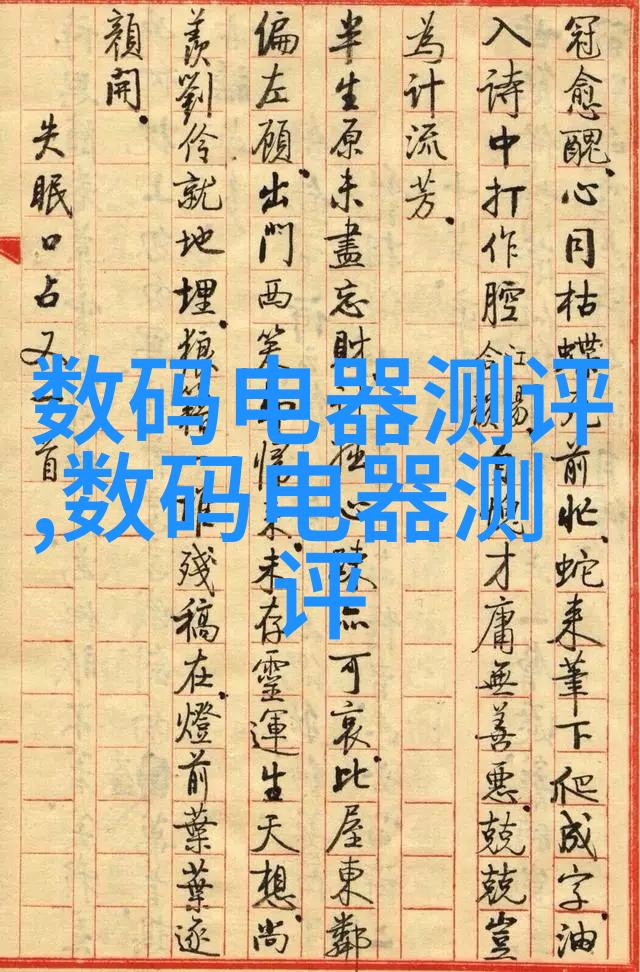 冠愈醜。心同枯蝶 前忙、蛇来筆下爬成字、油
入詩中打作腔 江陽合韻。 才庸無善惡。兢兢豈
為計流芳。
半生原未盡忘財 心 亦可哀。比屋東鄰
偏左顧。出門西笑 未存靈運生天想。尚
羨劉伶就地埋。狼籍 殘稿在。燈前葉葉逐
顔開。
失眠口占又 首
数码电器测评
,数码电器测
评